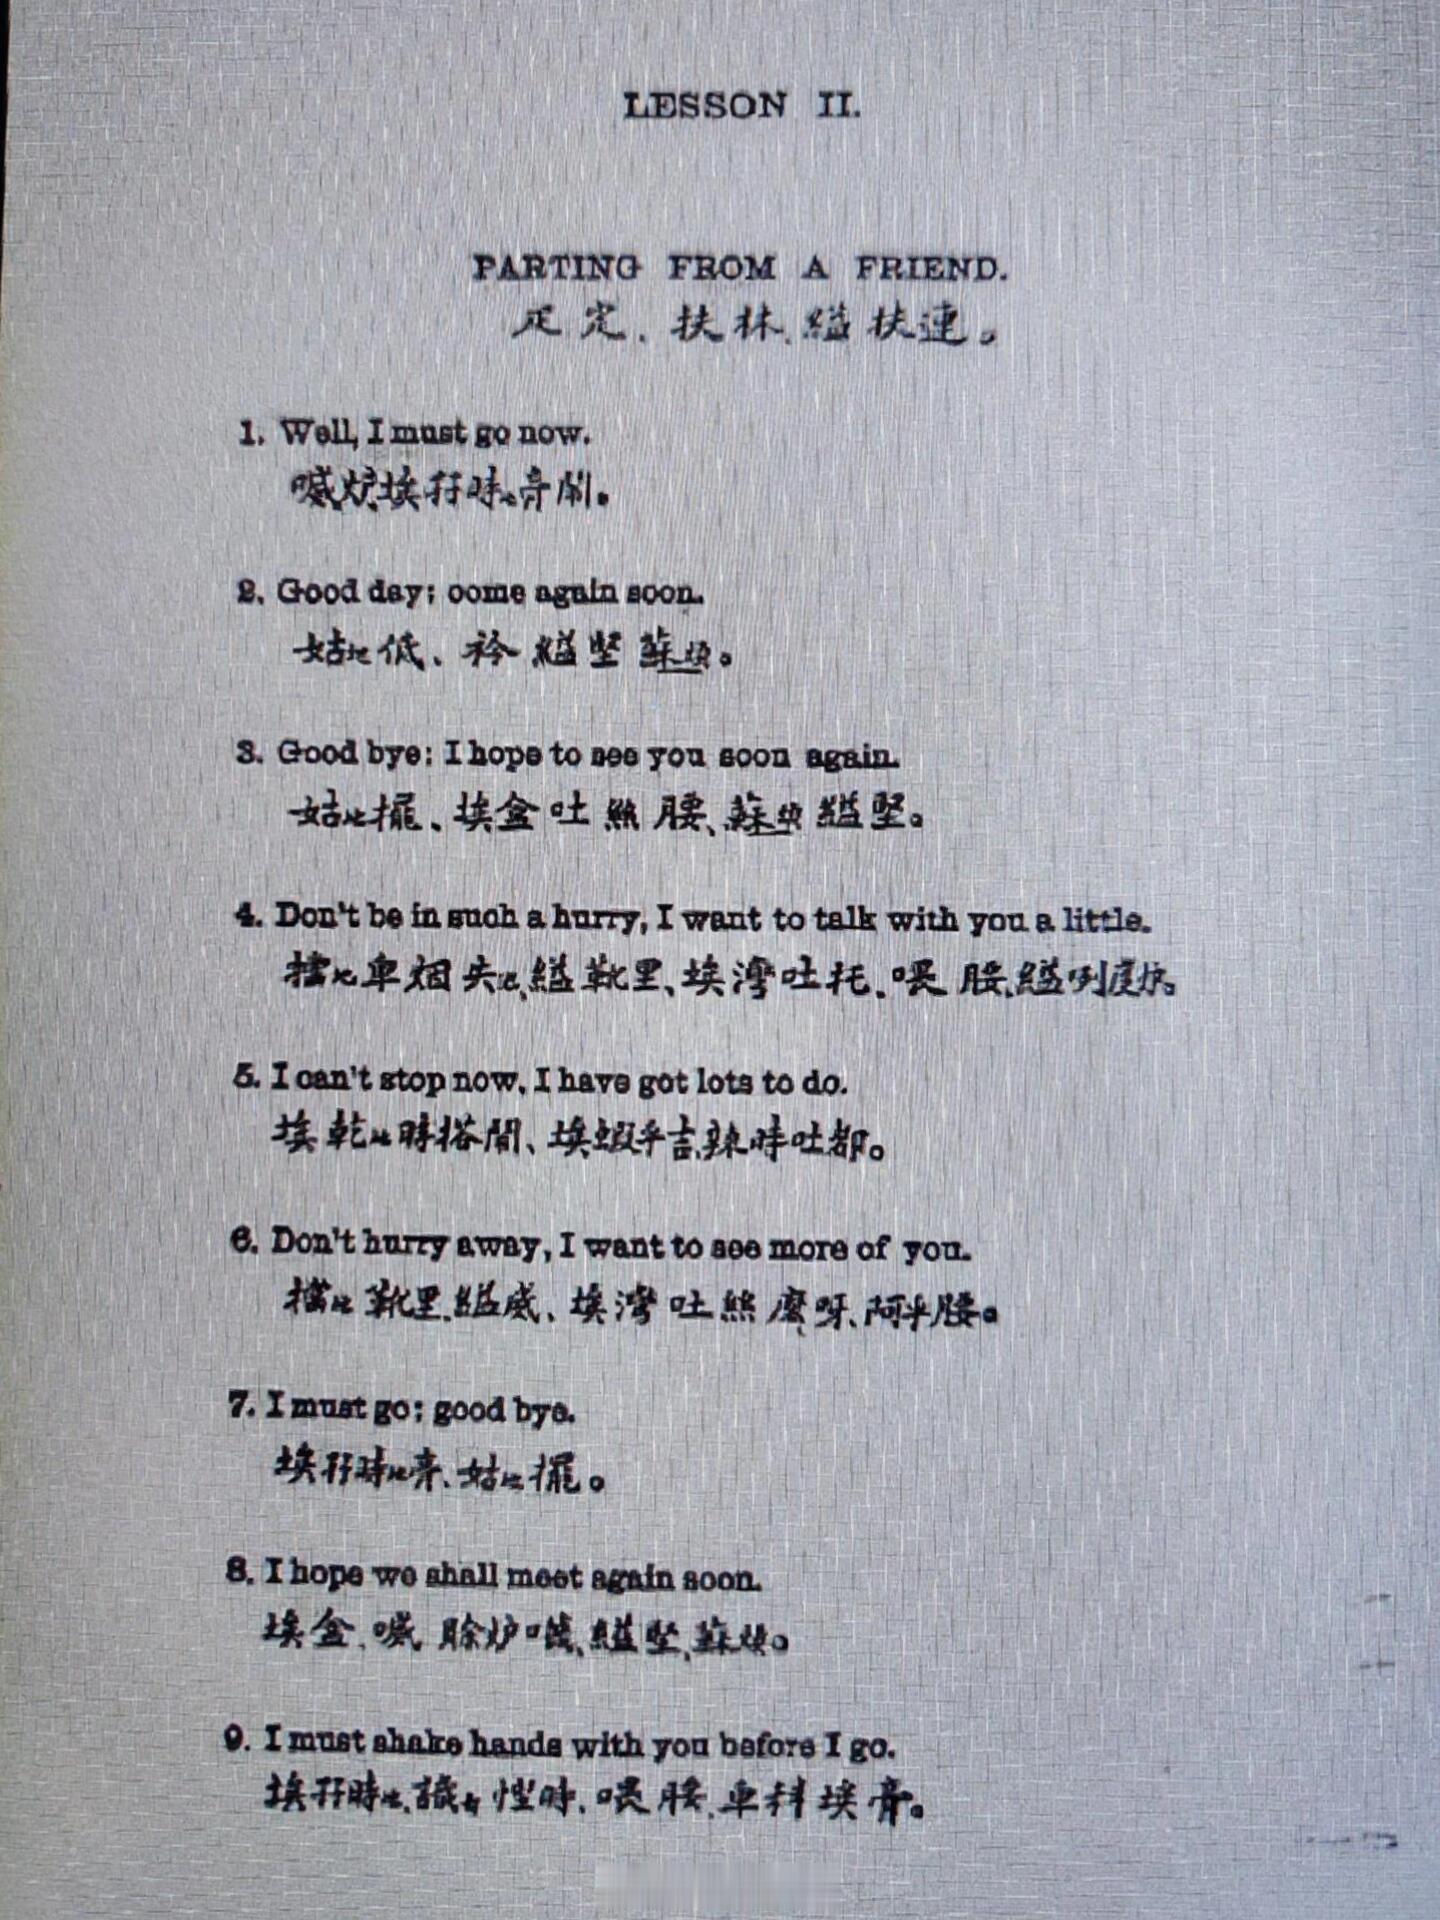 LESSON II.
PARTING FROM A FRIEND.
疋定、扶林、縊扶連。
1. Well, I must go now.
喊炉埃孖時乜膏鬧。
2. Good day; come again soon.
姑乜低、衿縊堅蘇
3. Good bye; I hope to see you soon again.
姑乜擺、埃盒吐絲腰、蘇縊堅。
4. Don't be in such a hurry, I want to talk with you a little.
擋乜卑烟失乜縊靴里、埃灣吐托、喂腰、縊咧度炉。
5. I can't stop now, I have got lots to do.
埃乾乜時搭閙、埃蝦乎吉辣時吐都。
6. Don't hurry away, I want to see more of you.
擋乜靴里縊威、埃灣吐絲麽呀、阿乎腰。
7. I must go; good bye.
埃孖時乜膏、姑乜擺。
8. I hope we shall meet again soon.
埃盒、喊賒炉縊堅、蘇
9. I must shake hands with you before I go.
埃孖時乜時、喂腰、卑科埃膏。